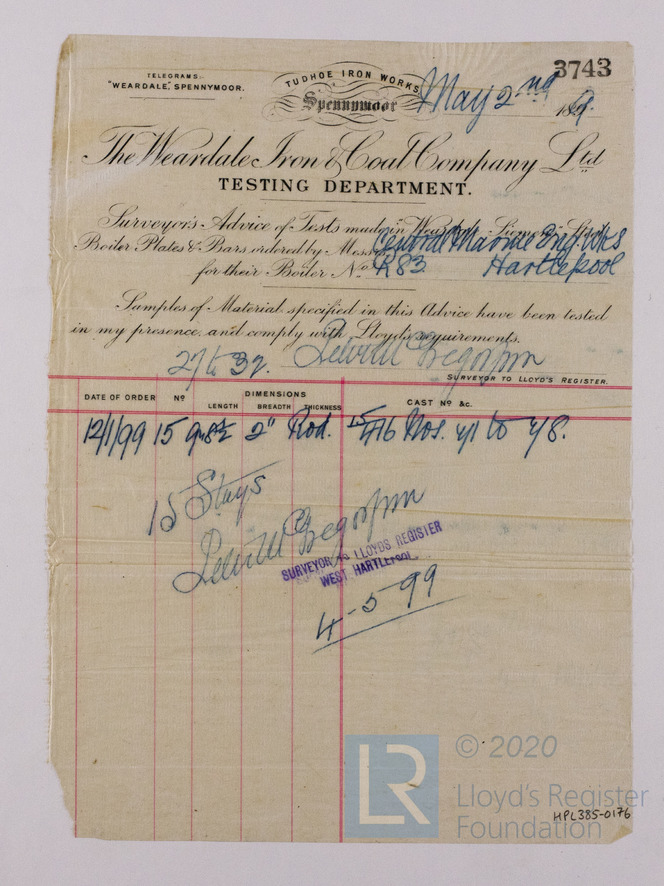 3743
TELEGRAMS:
"WEARDALE", SPENNYMOOR.
TUDHOE IRON WORKS
Spennymoor
May 2nd 1899.
The Weardale Iron & Coal Company Ltd
TESTING DEPARTMENT.
Surveyor's Advice of Tests made in Weardale Siemens Steel
Boiler Plates & Bars ordered by Messrs Central Marine Eng. Wks
for their Boiler No. R83. Hartlepool
Samples of Material specified in this Advice have been tested
in my presence, and comply with Lloyd's requirements.
27 to 32.
SURVEYOR TO LLOYD'S REGISTER.
DATE OF ORDER No DIMENSIONS CAST No &c.
LENGTH BREADTH THICKNESS
12/1/99 15 9-8½ 2" Rod. 15/716 Nos. 4/1 to 4/8.
15 Stays
SURVEYOR TO LLOYDS REGISTER
WEST HARTLEPOOL.
4-5-99
LR
© 2020
Lloyd's Register
Foundation
HPL385-0176